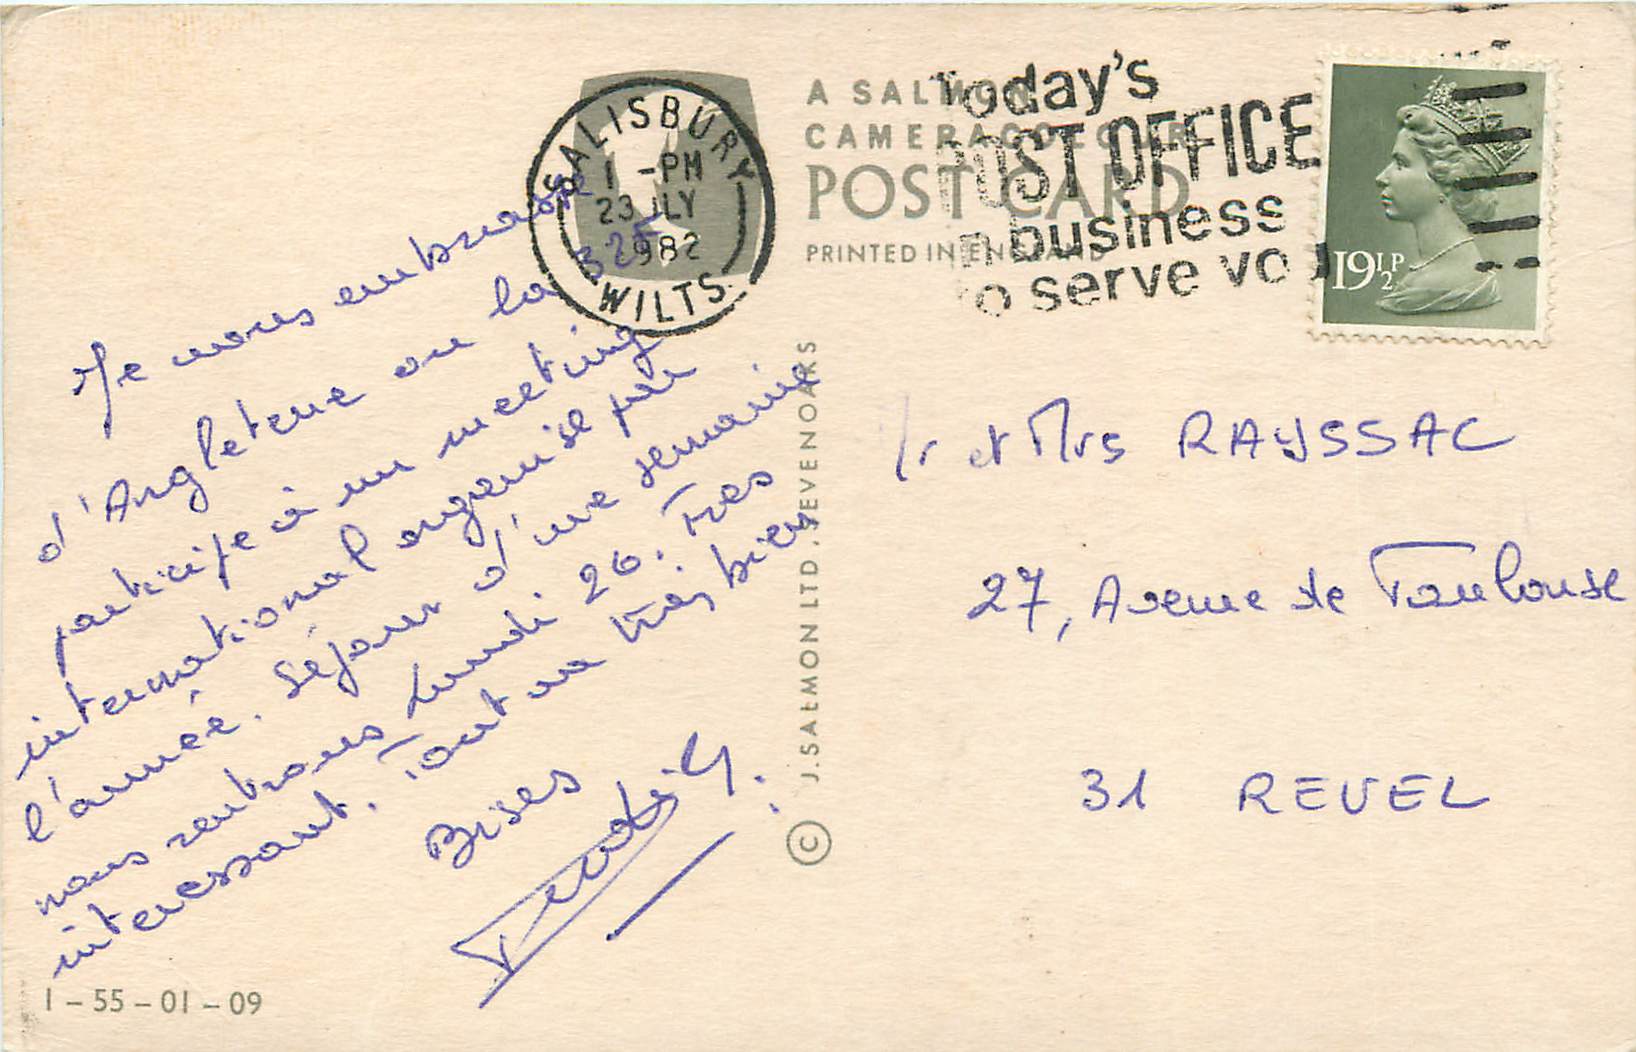 SALISBURY
1 - PM
23 JLY
1982
WILTS
A SALMON
CAMERACOLOUR
POST CARD
PRINTED IN ENGLAND
Today's
POST OFFICE
n business
o serve yo
19½P
Je vous embrasse
d'Angleterre ou la 32E
participe à un meeting
international organisé par
l'année. Séjour d'une semaine
nous rentrons Lundi 26. Très
intéressant. Tout va très bien
Bises
J. SALMON LTD. SEVENOAKS ©
r et Mrs RAYSSAC
27, Avenue de Toulouse
31 REVEL
1 - 55 - 01 - 09